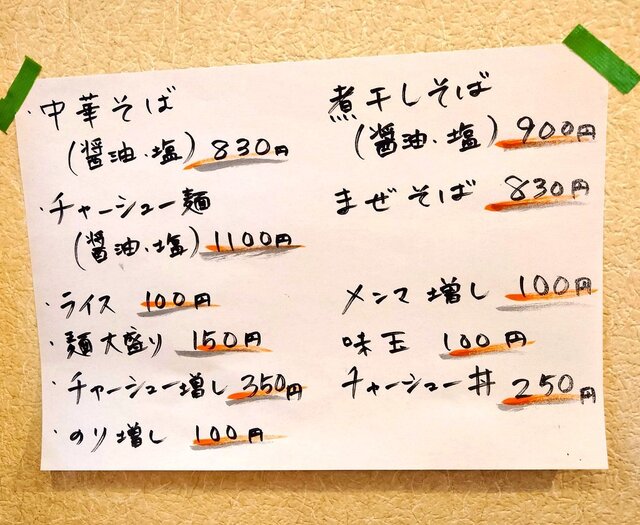 ・中華そば
(醤油、塩) 830円
・チャーシュー麺
(醤油、塩) 1100円
・ライス 100円
・麺大盛り 150円
・チャーシュー増し 350円
・のり増し 100円
煮干しそば
(醤油、塩) 900円
まぜそば 830円
メンマ増し 100円
味玉 100円
チャーシュー丼 250円